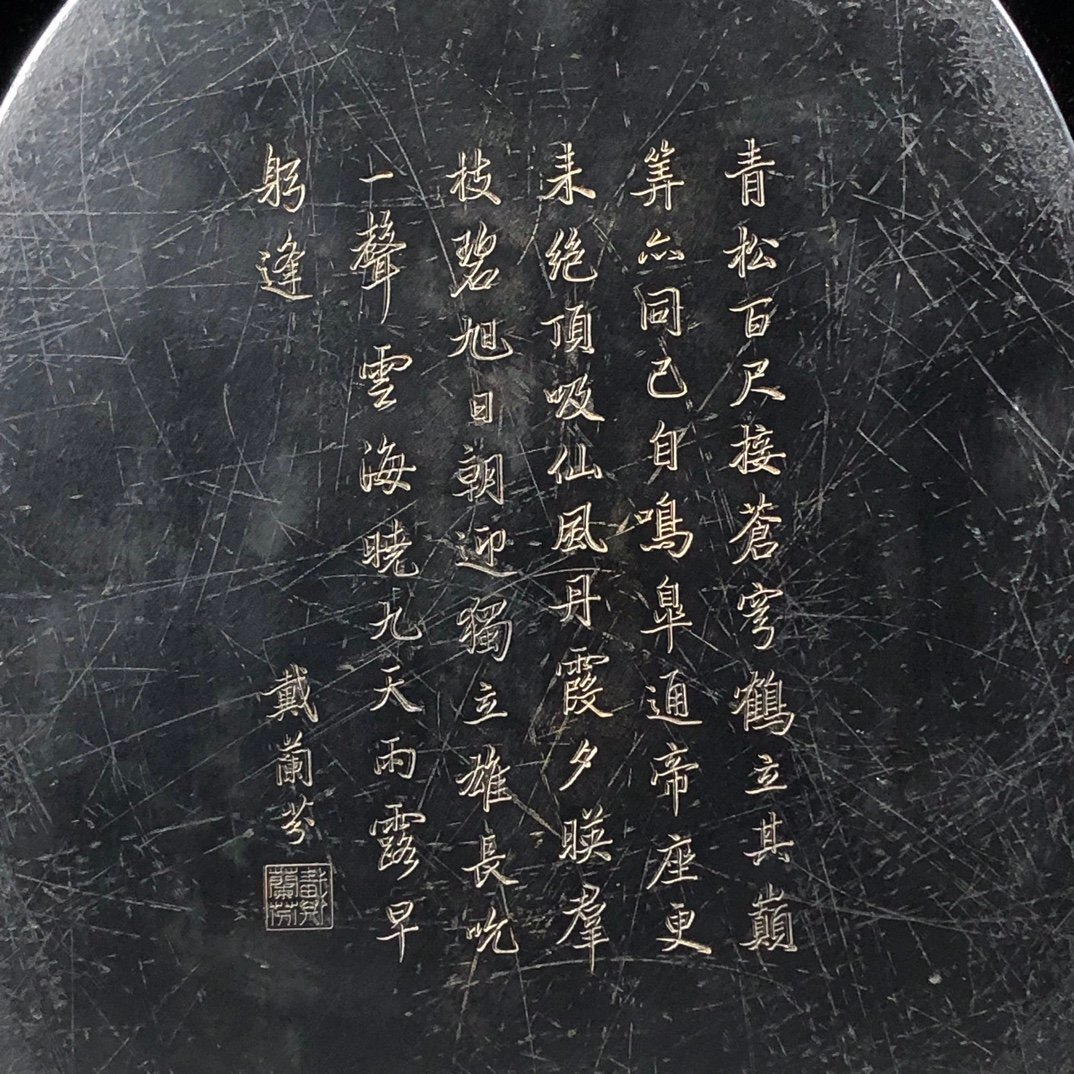 青松百尺接蒼穹鶴立其巔
筭亦同已自鳴皐通帝座更
来絕頂吸仙風丹霞夕暎羣
枝碧旭日朝迎獨立雄長吃
一聲雲海曉九天雨露早
躬逢
戴蘭芬
戴蘭芬